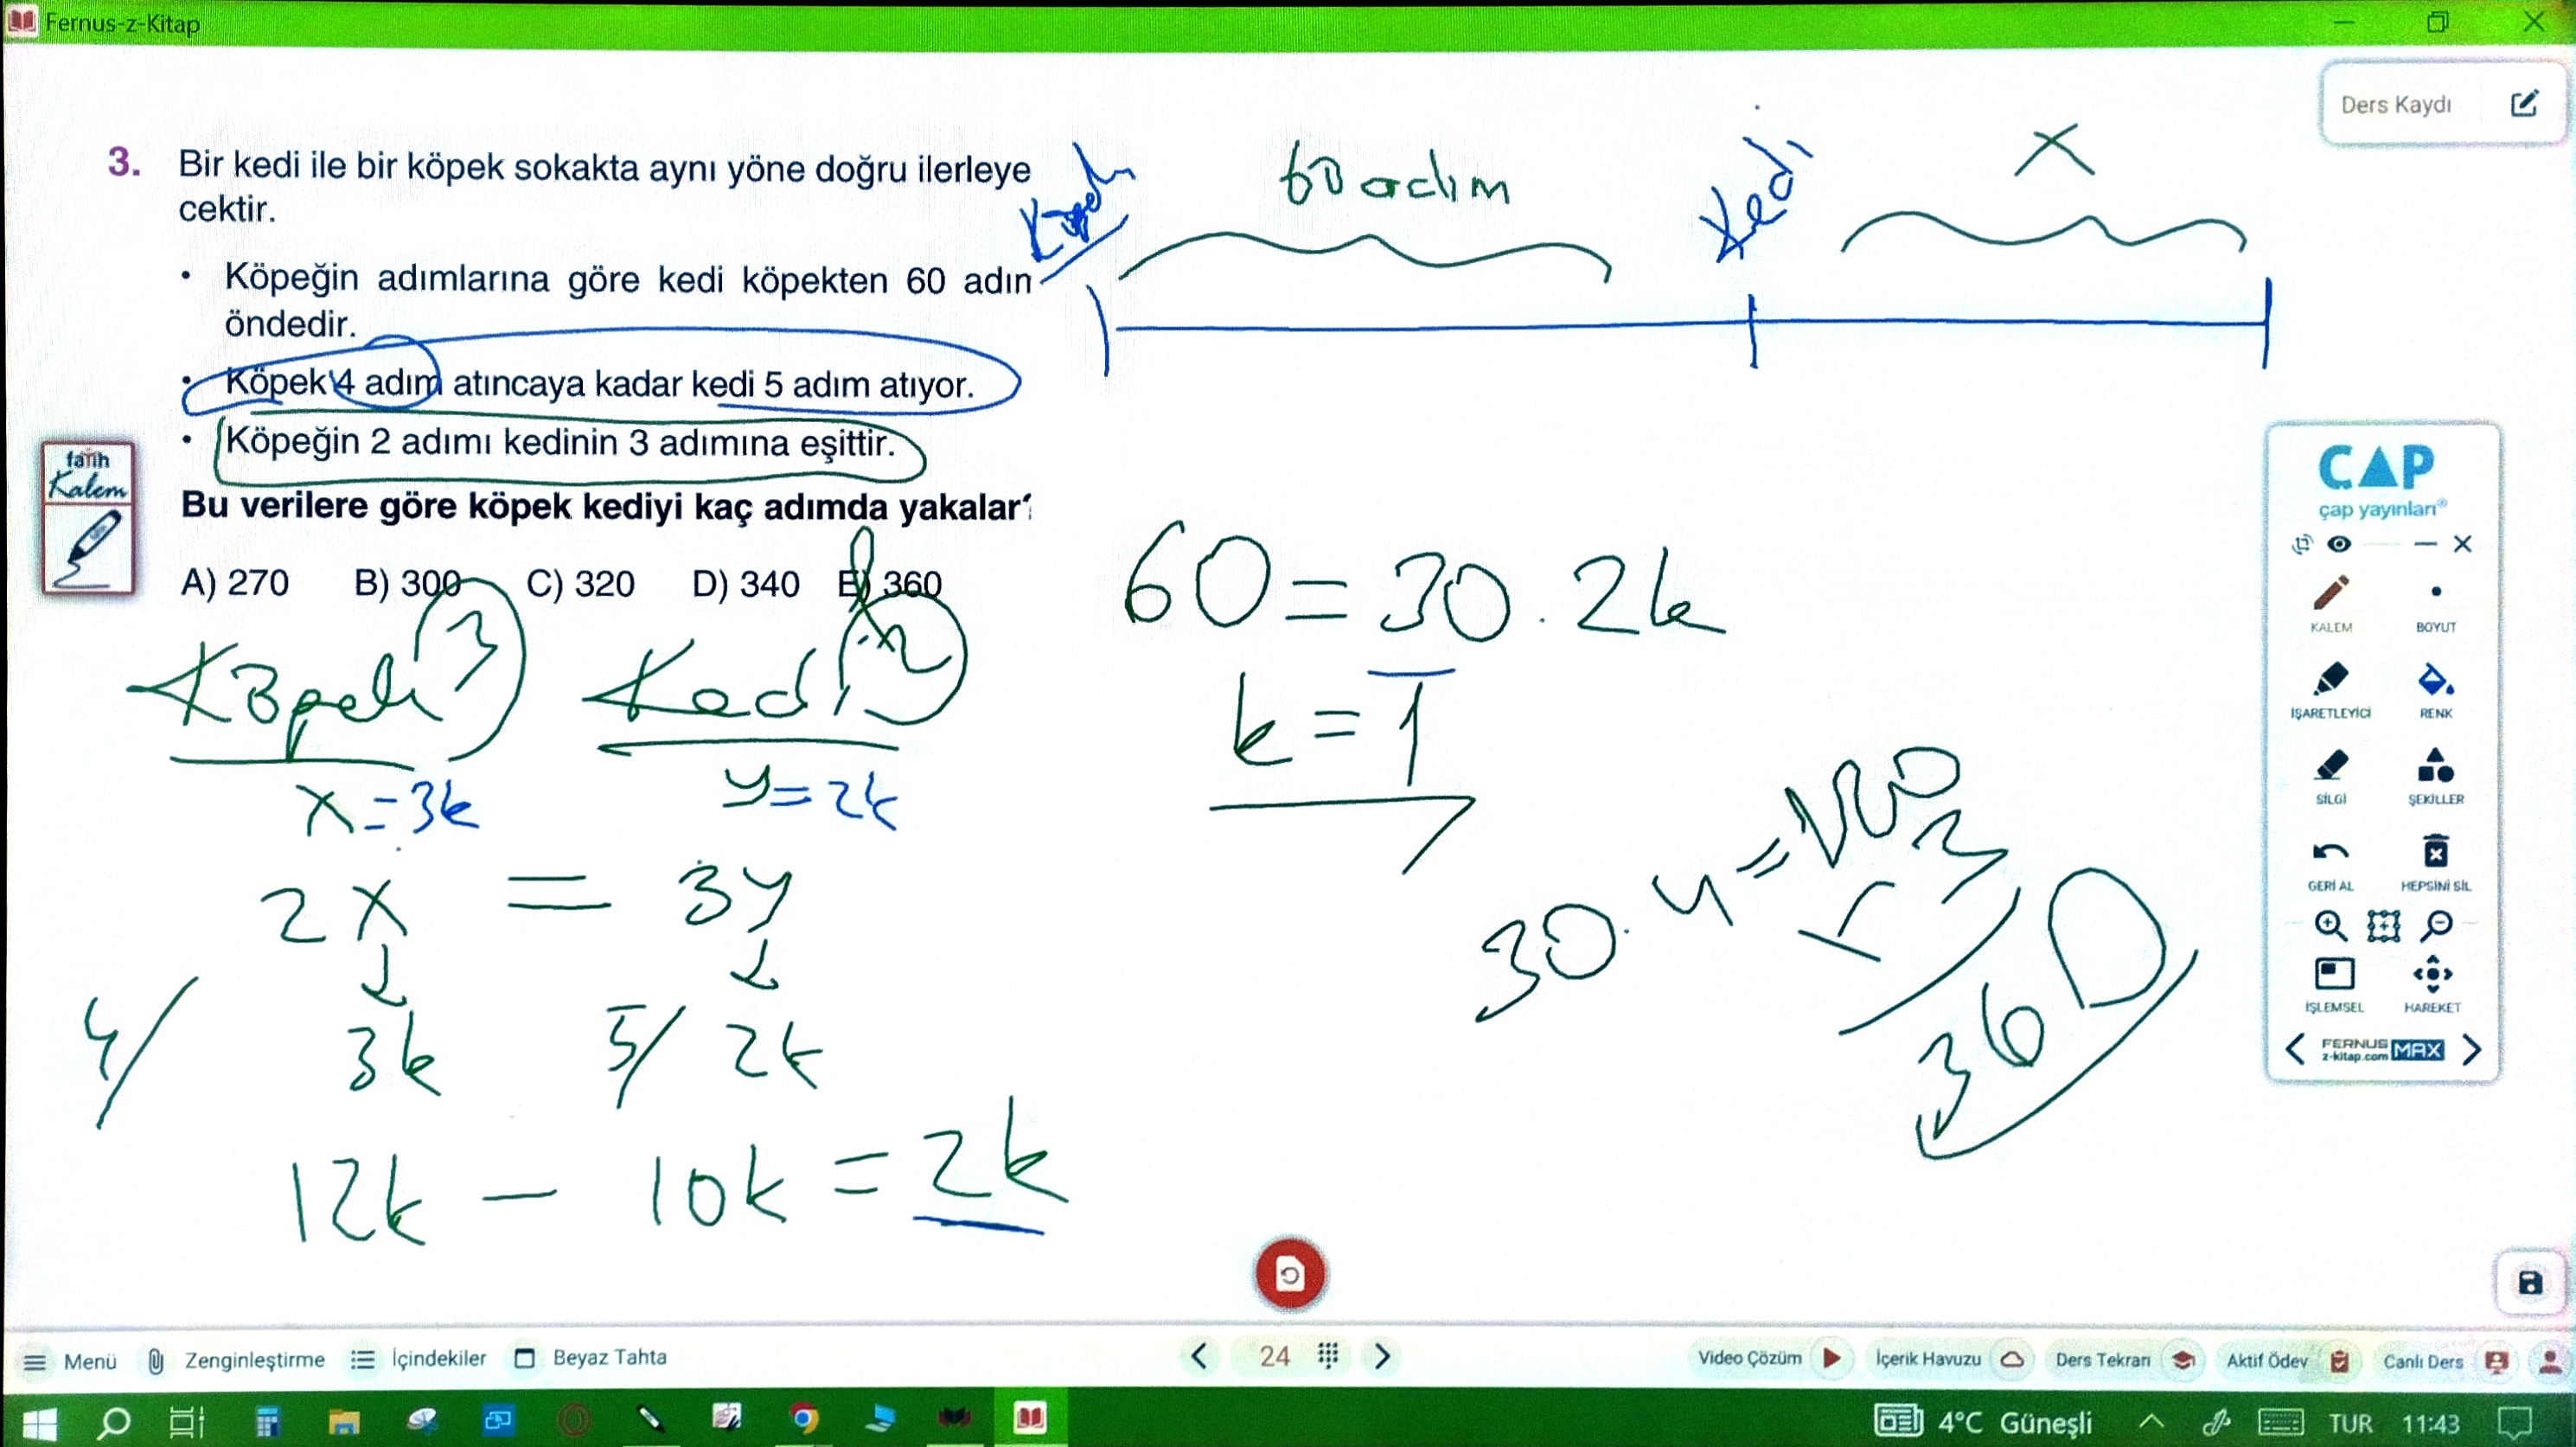 Fernus-z-Kitap
Ders Kaydı
3. Bir kedi ile bir köpek sokakta aynı yöne doğru ilerleye
cektir.
• Köpeğin adımlarına göre kedi köpekten 60 adın
öndedir.
• Köpek 4 adım atıncaya kadar kedi 5 adım atıyor.
• Köpeğin 2 adımı kedinin 3 adımına eşittir.
Bu verilere göre köpek kediyi kaç adımda yakalar?
A) 270 B) 300 C) 320 D) 340 E) 360
fatih
Kalem
Köpek
60 adım
Kedi
x
Köpek 3 Kedi 2
x = 3k y = 2k
2x = 3y
4/ 3k 5/ 2k
12k - 10k = 2k
60 = 30 . 2k
k = 1
30.4=
360
ÇAP
çap yayınları
KALEM BOYUT
İŞARETLEYİCİ RENK
SİLGİ ŞEKİLLER
GERİ AL HEPSİNİ SİL
İŞLEMSEL HAREKET
FERNUS
z-kitap.com MAX
Menü Zenginleştirme İçindekiler Beyaz Tahta 24 Video Çözüm İçerik Havuzu Ders Tekrarı Aktif Ödev Canlı Ders
4°C Güneşli TUR 11:43